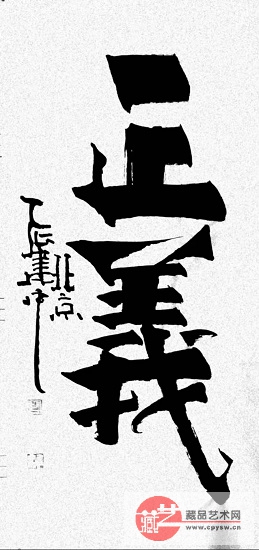 正義
北京
藏艺
藏品艺术网
www.cpysw.cn